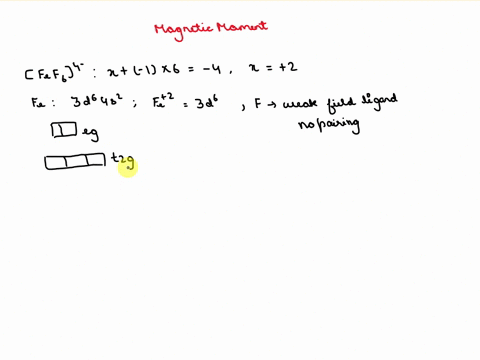 Magnetic Moment
[FeF6]4- : x+(-1)×6 = -4, x = +2
Fe: 3d6 4s2 ; Fe+2 = 3d6 , F → weak field ligand
no pairing
eg
t2g